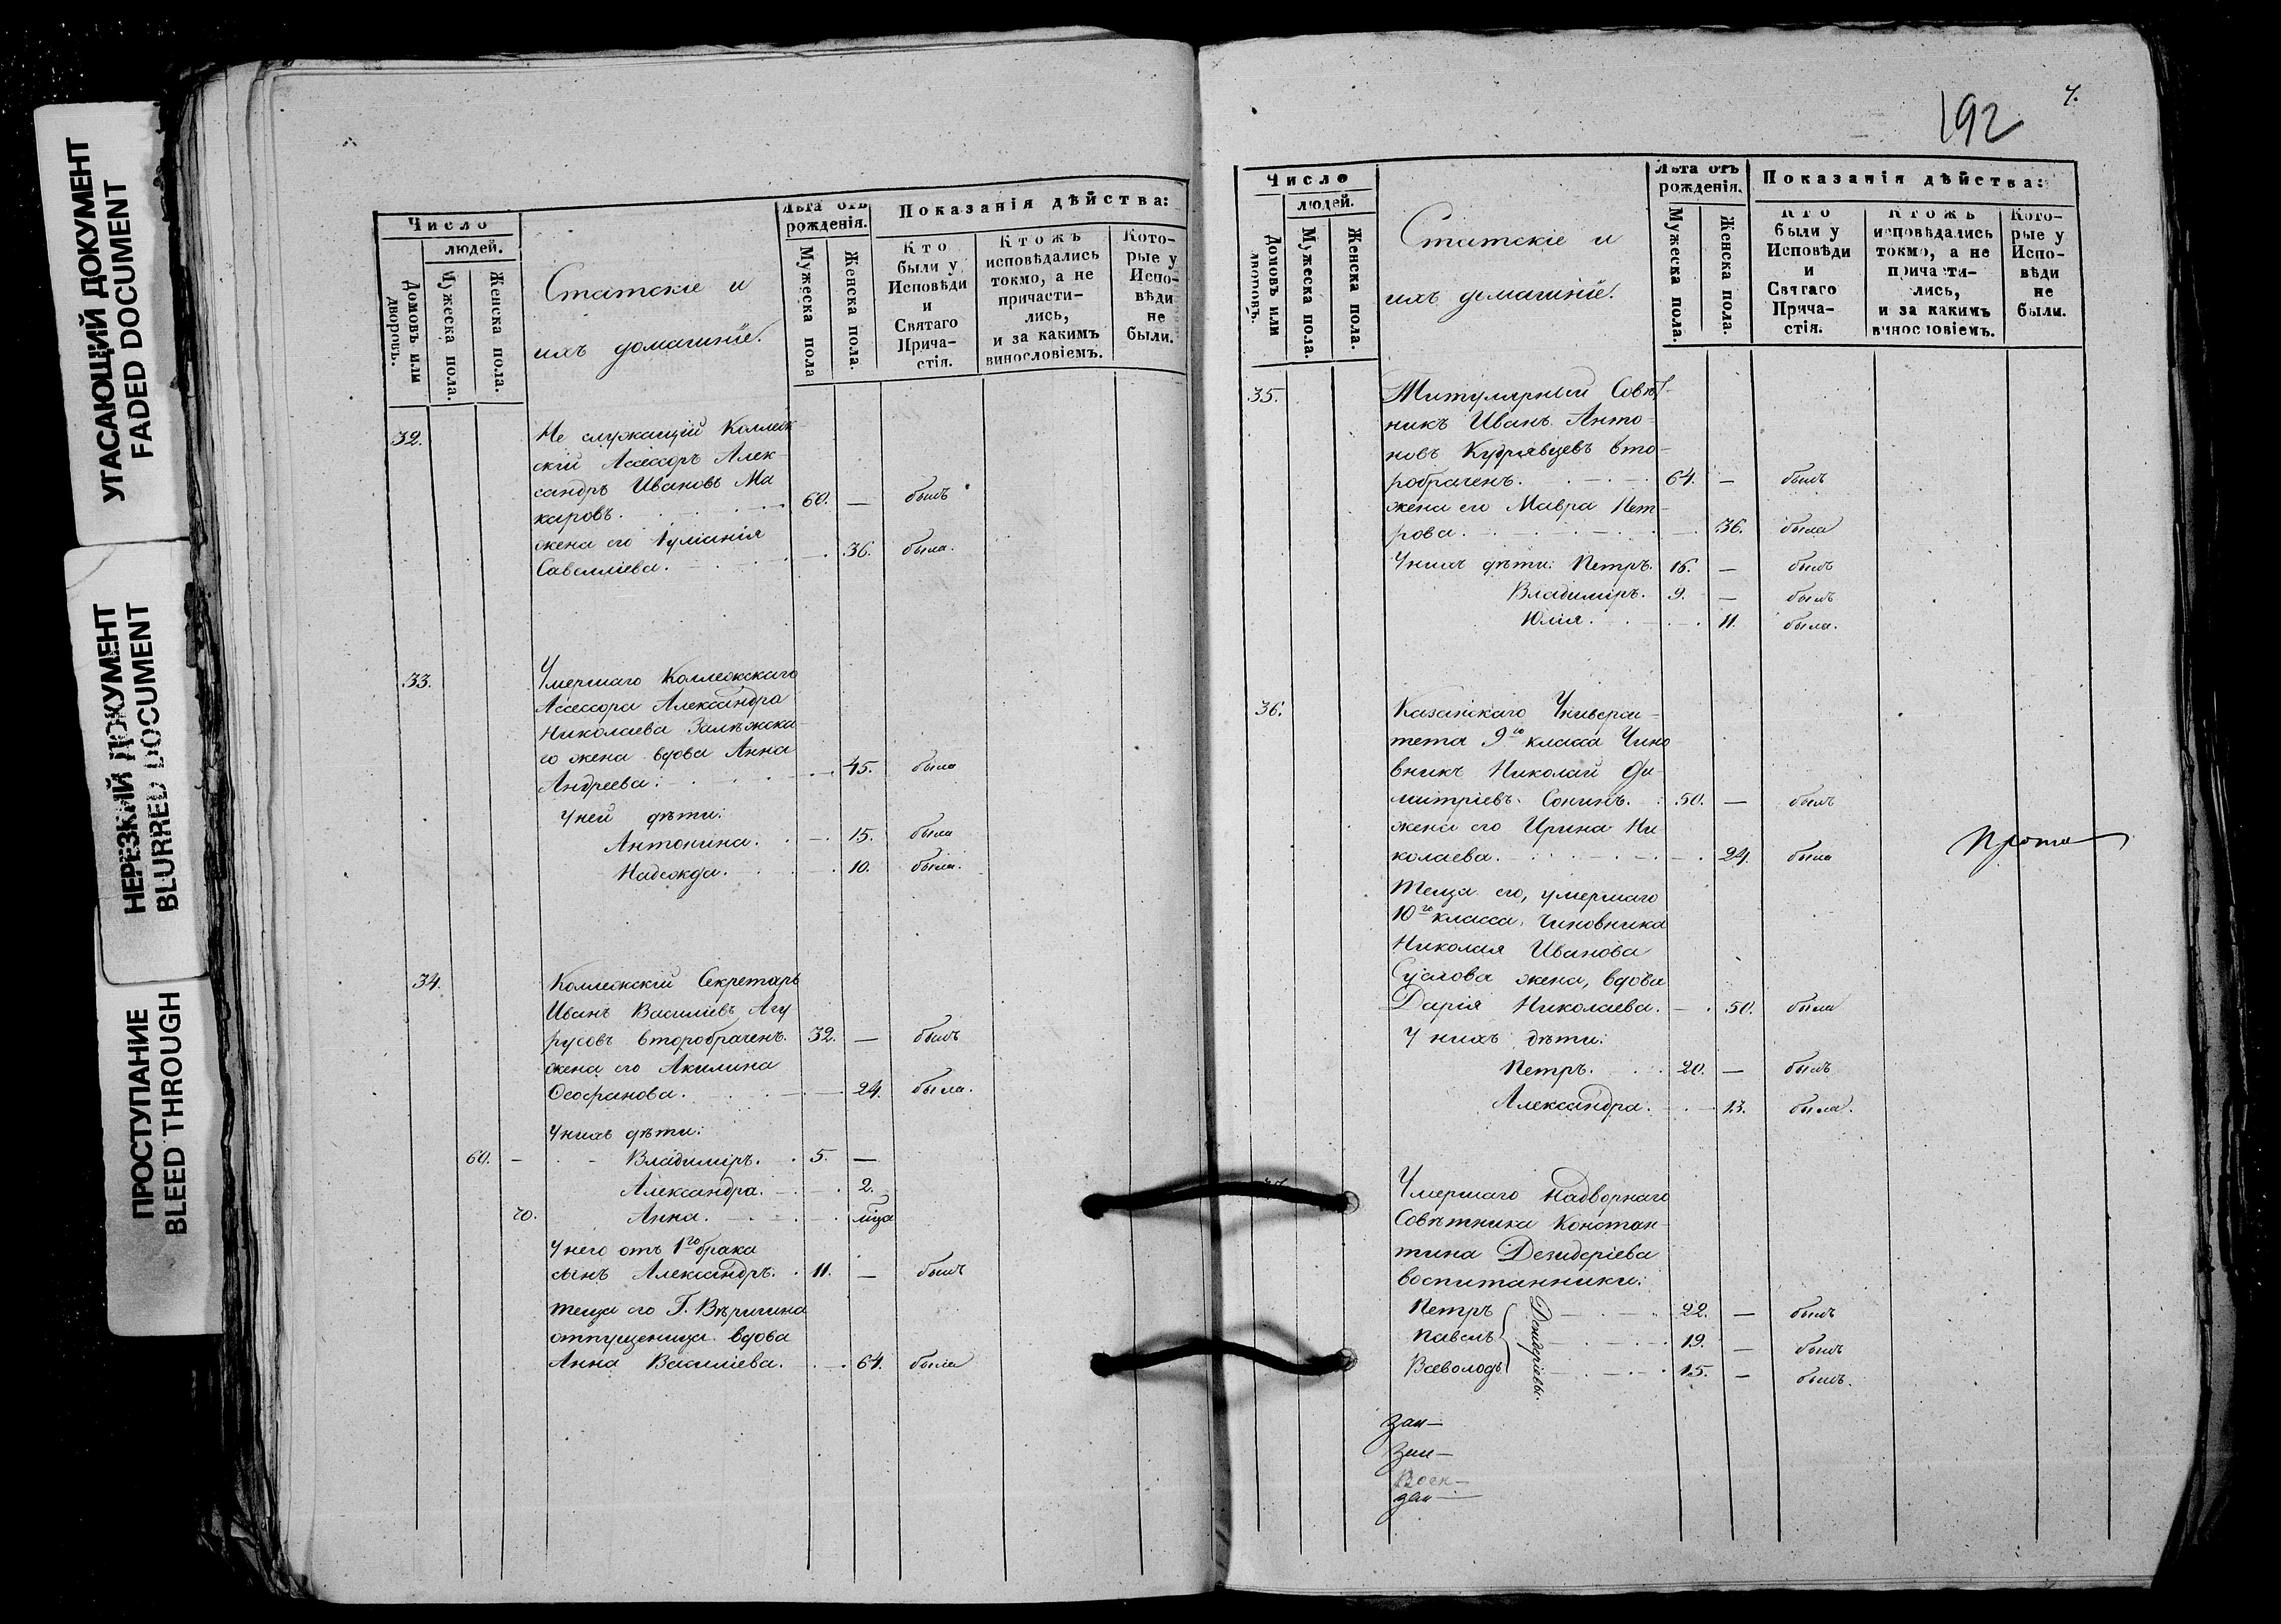 УГАСАЮЩИЙ ДОКУМЕНТ
FADED DOCUMENT
НЕРЕЗКИЙ ДОКУМЕНТ
BLURRED DOCUMENT
ПРОСТУПАНИЕ
BLEED THROUGH
Число
людей.
Домовъ или дворовъ.
Мужеска пола.
Женска пола.
Статскіе и
ихъ домашніе.
Лѣта отъ
рожденія.
Мужеска пола
Женска пола.
Показанія дѣйства:
Кто
были у
Исповѣди
и
Святаго
Прича-
стія.
Ктожъ
исповѣдались
токмо, а не
причасти-
лись,
и за какимъ
винословіемъ.
Кото-
рые у
Испо-
вѣди
не
были.
32. Не служащій Коллеж
скій Асессоръ Алек-
сандръ Ивановъ Ма
каровъ. 60. — былъ
жена его Іуліанія
Савелліева. — 36. была.
33. Умершаго Коллежскаго
Асессора Александра
Николаева Залѣжска-
го жена вдова Анна
Андреева: — 45. была
У ней дѣти:
Антонина. — 15. была
Надежда. 10. была.
34. Коллежскій Секретарь
Иванъ Василіевъ Агу
русовъ второбраченъ. 32. — былъ
жена его Акилина
Ѳеофанова. — 24. была.
У нихъ дѣти:
60. — Владиміръ. 5. —
Александра. — 2.
70. Анна. — мѣца
У него отъ 1го брака
сынъ Александръ. 11. — былъ
теща его Г. Вѣригина
отпущеница вдова
Анна Василіева. — 64. была
7.
192
Число
людей.
Домовъ или дворовъ.
Мужеска пола.
Женска пола.
Статскіе и
ихъ домашніе.
Лѣта отъ
рожденія.
Мужеска пола.
Женска пола.
Показанія дѣйства:
Кто
были у
Исповѣди
и
Святаго
Прича-
стія.
Ктожъ
исповѣдались
токмо, а не
причасти-
лись,
и за какимъ
винословіемъ.
Кото-
рые у
Испо-
вѣди
не
были.
35. Титулярный Совѣт-
никъ Иванъ Анто-
новъ Кудрявцевъ вто-
робраченъ. 64. — былъ
жена его Мавра Пет-
рова. — 36. была
У нихъ дѣти: Петръ. 16. — былъ
Владиміръ. 9. — былъ
Юлія. — 11. была.
36. Казанскаго Универси-
тета 9го класса Чино
вникъ Николай Ди-
митріевъ Сонинъ. 50. — былъ
жена его Ирина Ни
колаева. — 24. была
Теща его, умершаго
10го класса Чиновника
Николая Иванова
жена, вдова
Дарія Николаева. — 50. была
У нихъ дѣти:
Петръ. 20. — былъ
Александра. — 13. была.
Умершаго Надворнаго
Совѣтника Констан-
тина Дезидеріева
воспитанники:
Петръ 22. — былъ
Павелъ 19. — былъ
Всеволодъ 15. — былъ.
Дезидеріевы.